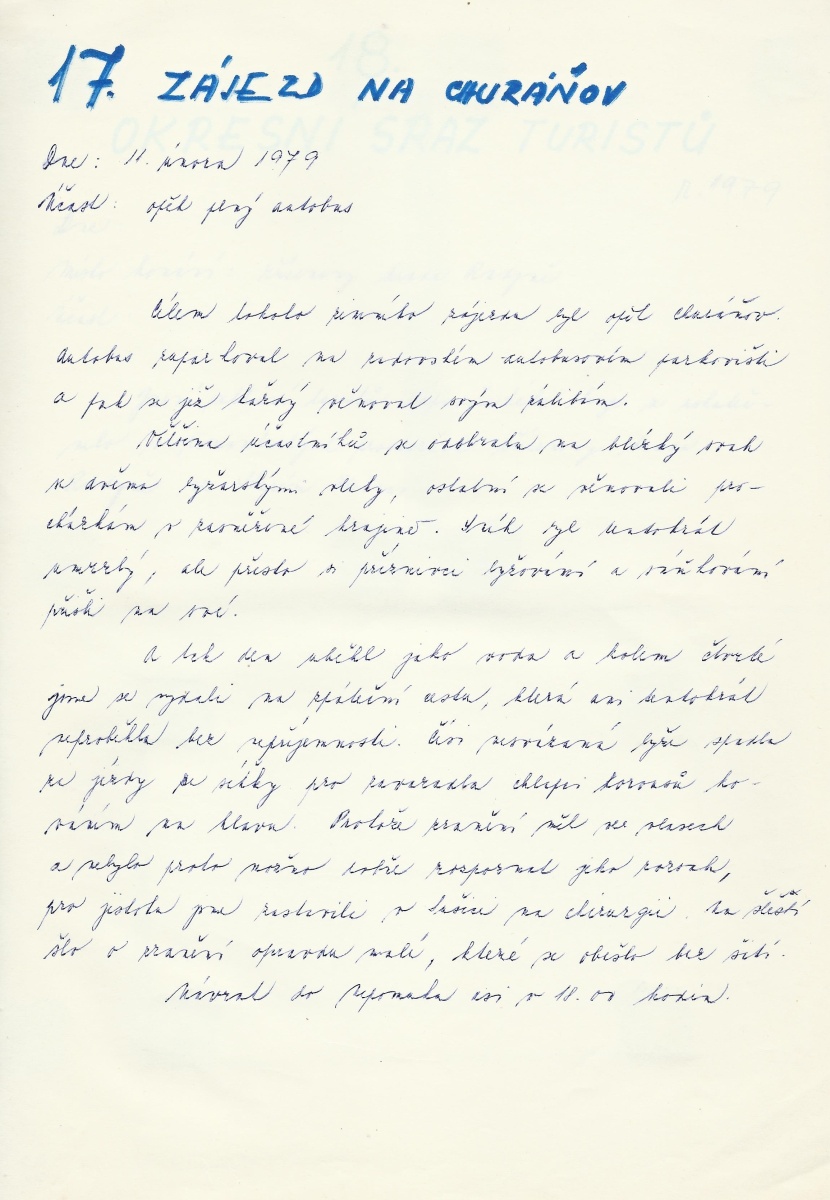 17. ZÁJEZD NA CHURÁŇOV
Dne: 11. února 1979
Účast: opět plný autobus
Cílem tohoto zimního zájezdu byl opět Churáňov.
Autobus zaparkoval na zadovském autobusovém parkovišti
a pak se již každý věnoval svým zálibám.
Většina účastníků se odebrala na blízký svah
se dvěma lyžařskými vleky, ostatní se věnovali pro-
cházkám v zasněžené krajině. Sníh byl tentokrát
umrzlý, ale přesto si příznivci lyžování a sáňkování
přišli na své.
A tak den uběhl jako voda a kolem čtvrté
jsme se vydali na zpáteční cestu, která ani tentokrát
neproběhla bez nepříjemnosti. Čísi nesvázaná lyže spadla
za jízdy ze síťky pro zavazadla chlapci Korousů ko-
váním na hlavu. Protože zranění měl ve vlasech
a nebylo proto možno dobře rozpoznat jeho rozsah,
pro jistotu jsme zastavili v Sušici na chirurgii. Na štěstí
šlo o zranění opravdu malé, které se obešlo bez šití.
Návrat do Nepomuka asi v 18.00 hodin.